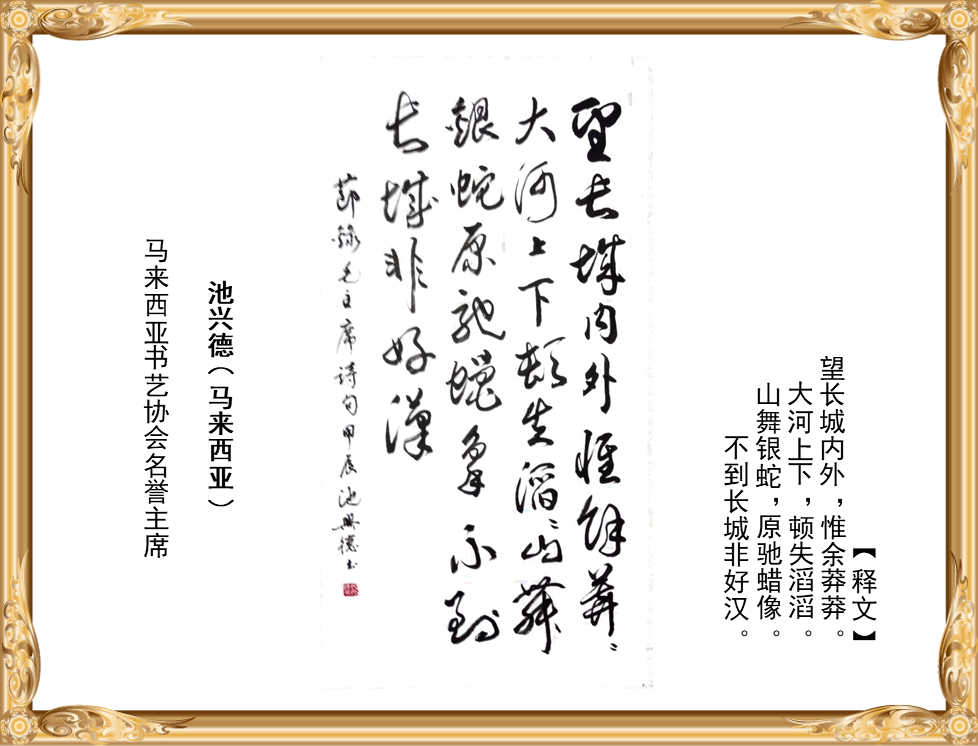 【释文】
望长城内外，惟余莽莽。
大河上下，顿失滔滔。
山舞银蛇，原驰蜡像。
不到长城非好汉。
望長城内外惟餘莽〻
大河上下頓失滔〻山舞
銀蛇原馳蠟象不到
長城非好漢
節錄毛主席詩句甲辰池興德书
池兴德（马来西亚）
马来西亚书艺协会名誉主席